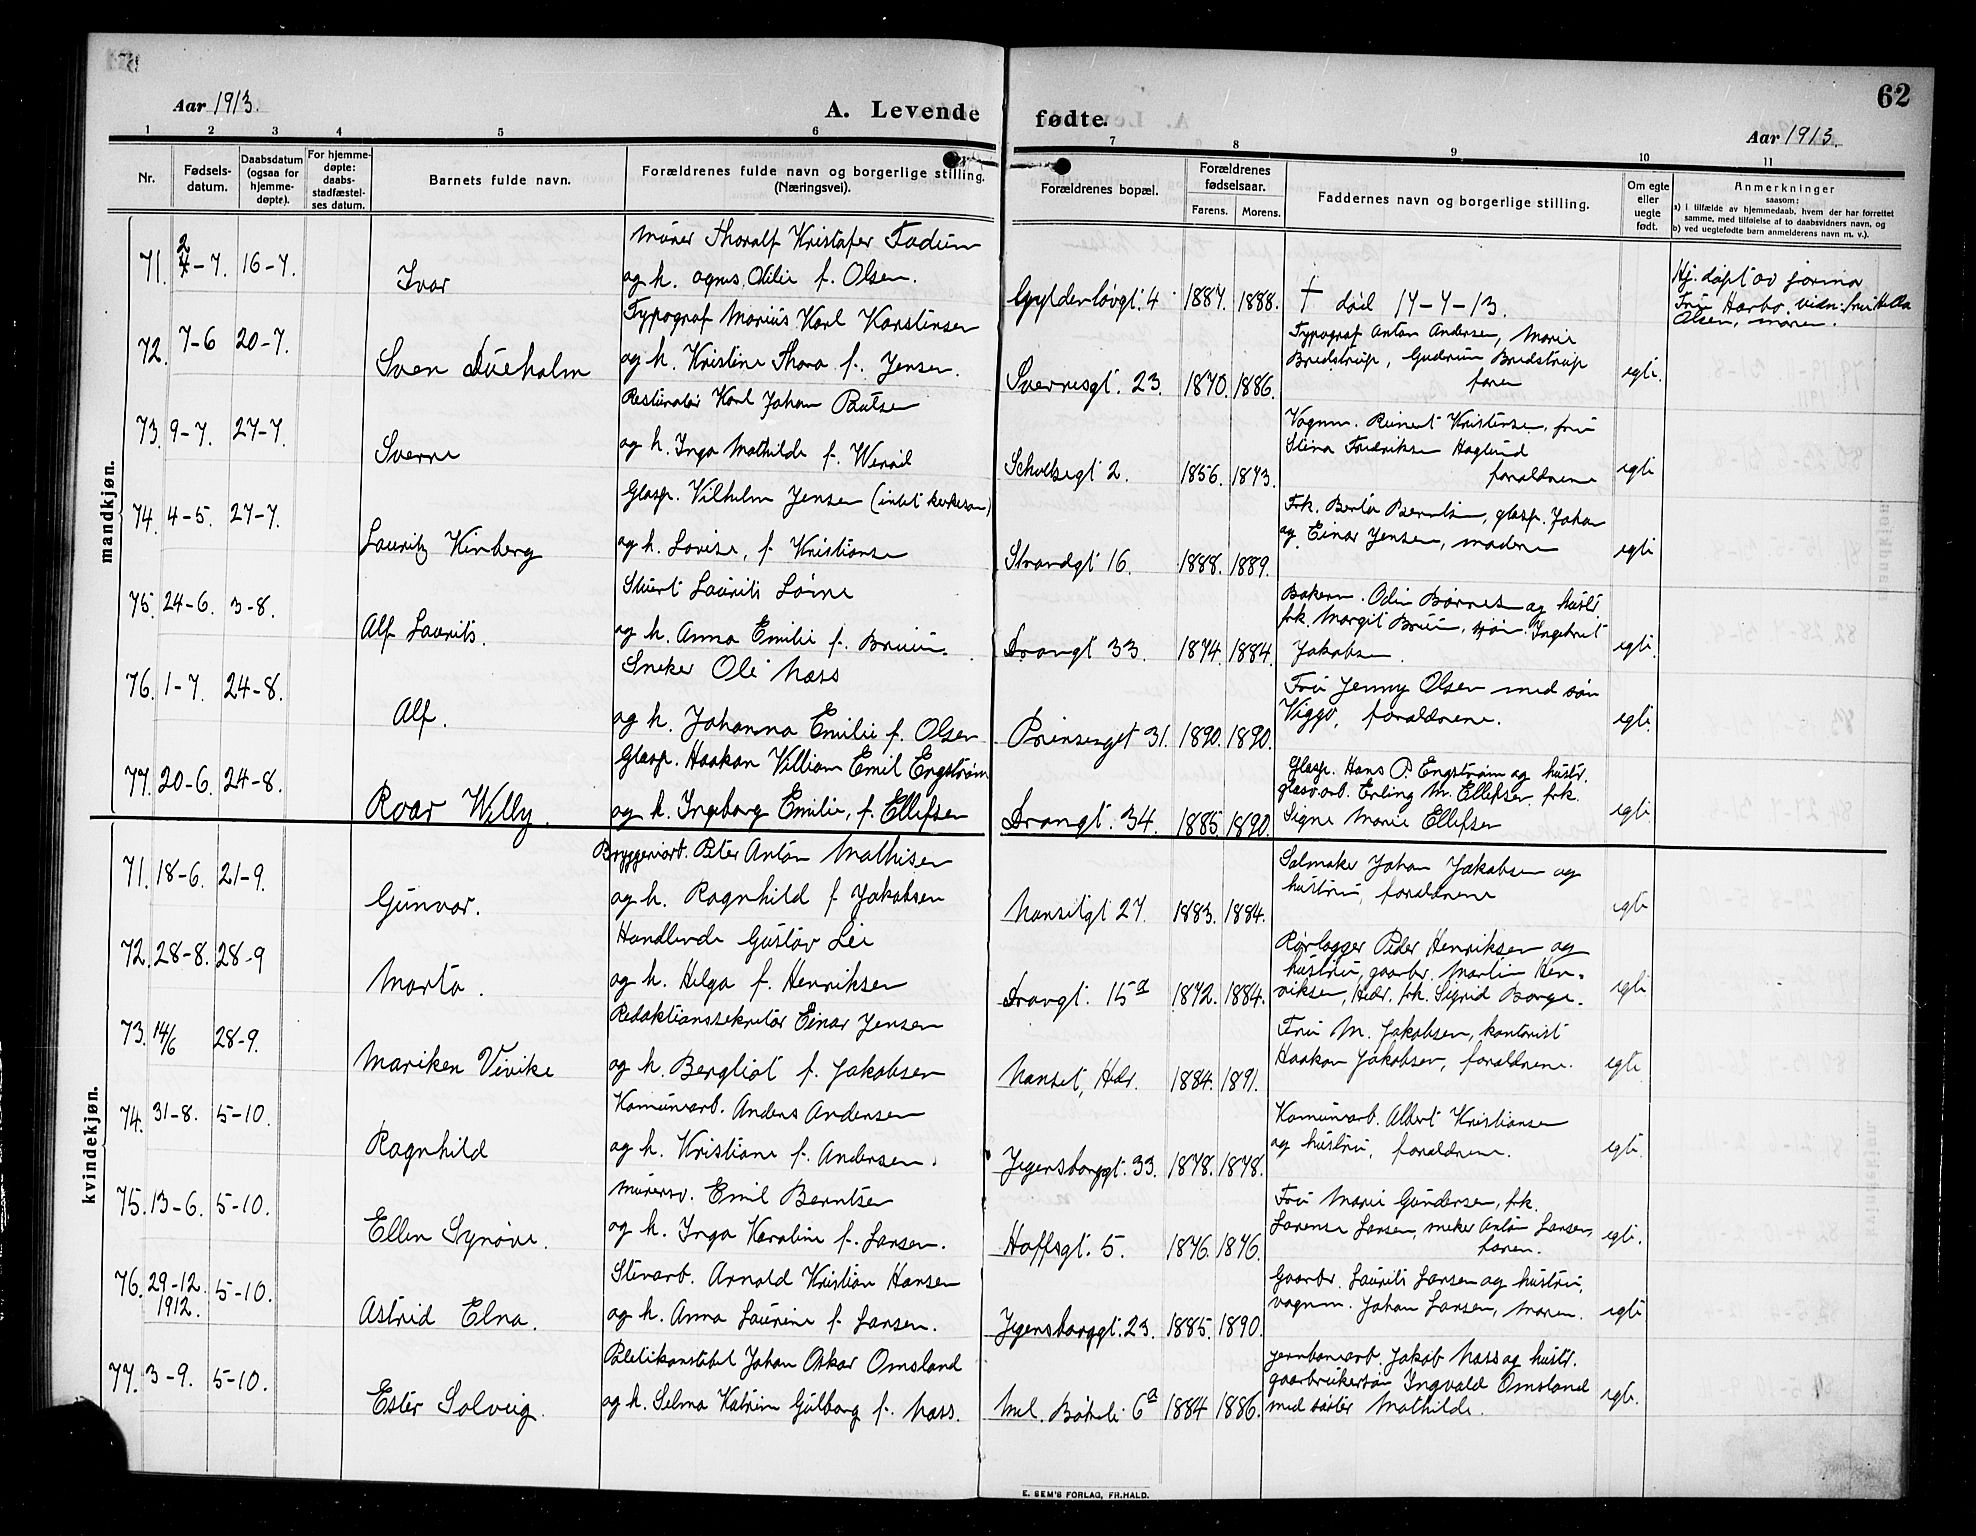 62
Aar 1913.
A. Levende fødte.
Aar 1913.
1 2 3 4 5 6 7 8 9 10 11
Nr.
Fødsels-
datum.
Daabsdatum
(ogsaa for
hjemme-
døpte).
For hjemme-
døpte:
daabs-
stadfæstel-
ses datum.
Barnets fulde navn.
Forældrenes fulde navn og borgerlige stilling.
(Næringsvei).
Forældrenes bopæl.
Forældrenes
fødselsaar.
Farens. Morens.
Faddernes navn og borgerlige stilling.
Om egte
eller
uegte
født.
Anmerkninger
saasom:
a) i tilfælde av hjemmedaab, hvem der har forrettet
samme, med tilføielse af to daabsvidners navn, og
b) ved uegtefødte barn anmelderens navn m. v.).
mandkjøn.
71. 2-7. 16-7.
Ivar
Murer Thoralf Kristofer Fadum
og h. Agnes Otilie f. Olsen.
Gyldenløvgt. 4 1887. 1888.
† død 17-7-13.
Hj. døpt av jormor
Fru Harbo. vidn: fru Hella
Olsen, moren.
72. 7-6 20-7.
Sven Dueholm
Typograf Marius Karl Karstensen
og h. Kristine Thora f. Jensen.
Sverresgt. 23. 1870. 1886.
Typograf Anton Andersen, Marie
Bredstrup, Gudrun Bredstrup
faren
egte.
73. 9-7. 27-7.
Sverre
Restauratør Karl Johan Paulsen
og h. Inga Mathilde f.
Schultzegt 2. 1856. 1873.
Vognm. Reinert Kristensen, fru
Stina Fredriksen Haglund
forældrene
egte
74. 4-5. 27-7.
Lauritz Kinberg
Glasp. Vilhelm Jensen (intet kirkesam)
og h. Lovise, f. Kristianse
Strandgt 16. 1888. 1889.
Frk. Berta Berntsen, glasp. Johan
og Einar Jensen, moderen
egte
75. 24-6. 3-8.
Alf Laurits.
Stuert Laurits Løine
og h. Anna Emilie f. Bruun.
Drangt 33. 1874. 1884.
Bakerm. Odin Børresen og hustr
frk. Margit Bruun, sjøm. Ingebret
Jakobsen.
egte.
76. 1-7. 24-8.
Alf.
Sneker Ole Næss
og h. Johanna Emilie f. Olsen
Prinsensgt 31. 1890. 1890.
Fru Jenny Olsen med søn
Viggo, forældrene.
egte.
77. 20-6. 24-8.
Roar Willy.
Glasp. Haakon Villiam Emil Engstrøm
og h. Ingeborg Emilie, f. Ellefsen
Drangt. 34. 1885. 1890.
Glasp. Hans P. Engstrøm og hustr.
glasvarb. Erling M. Ellefsen frk.
Signe Marie Ellefsen
egte
kvindekjøn.
71. 18-6. 21-9.
Gunvor.
Bryggeriarb. Peter Anton Mathisen
og h. Ragnhild f Jakobsen
Nansetgt 27. 1883. 1884.
Salmaker Johan Jakobsen og
hustru, forældrene
egte
72. 28-8. 28-9
Marta.
Handlende Gustav Lie
og h. Helga f. Henriksen
Drangt. 15a 1872. 1884.
Rørlægger Peder Henriksen og
hustru, gaarbr. Martin Hen-
riksen, Hedr. frk. Sigrid Borge.
egte
73. 14/6 28-9.
Mariken Vivike
Redaktionssekretær Einar Jensen
og h. Bergliot f. Jakobsen
Nanset, Hedr. 1884. 1891.
Fru M. Jakobsen, kontorist
Haakon Jakobsen, forældrene.
egte
74. 31-8. 5-10.
Ragnhild
Komunearb. Anders Andersen
og h. Kristiane f. Andersen.
Jegersborggt. 33. 1878. 1878.
Komunearb. Albert Kristiansen
og hustru, forældrene.
egte.
75. 13-6. 5-10.
Ellen Synøve.
Murersv. Emil Berntsen
og h. Inga Karoline f. Larsen.
Hoffsgt. 5. 1876. 1876.
Fru Marie Gundersen, frk.
Lorense Larsen, sneker Anton Larsen,
faren.
egte.
76. 29-12. 1912. 5-10.
Astrid Elna.
Stenarb. Arnold Kristian Hansen
og h. Anna Laurine f. Larsen.
Jegersborggt. 23. 1885. 1890.
Gaarbr. Laurits Larsen og hustru,
vognm. Johan Larsen, moren.
egte
77. 3-9. 5-10.
Ester Solveig.
Politikonstabel Johan Oskar Omsland
og h. Selma Katrine Gulborg f. Næss.
Mel. Bøkeli 6a 1884 1886.
Jernbanearb. Jakob Næss og hustr.
gaarbrukersøn Ingvald Omsland
med søster Mathilde.
egte.
E. SEM'S FORLAG, FR.HALD.